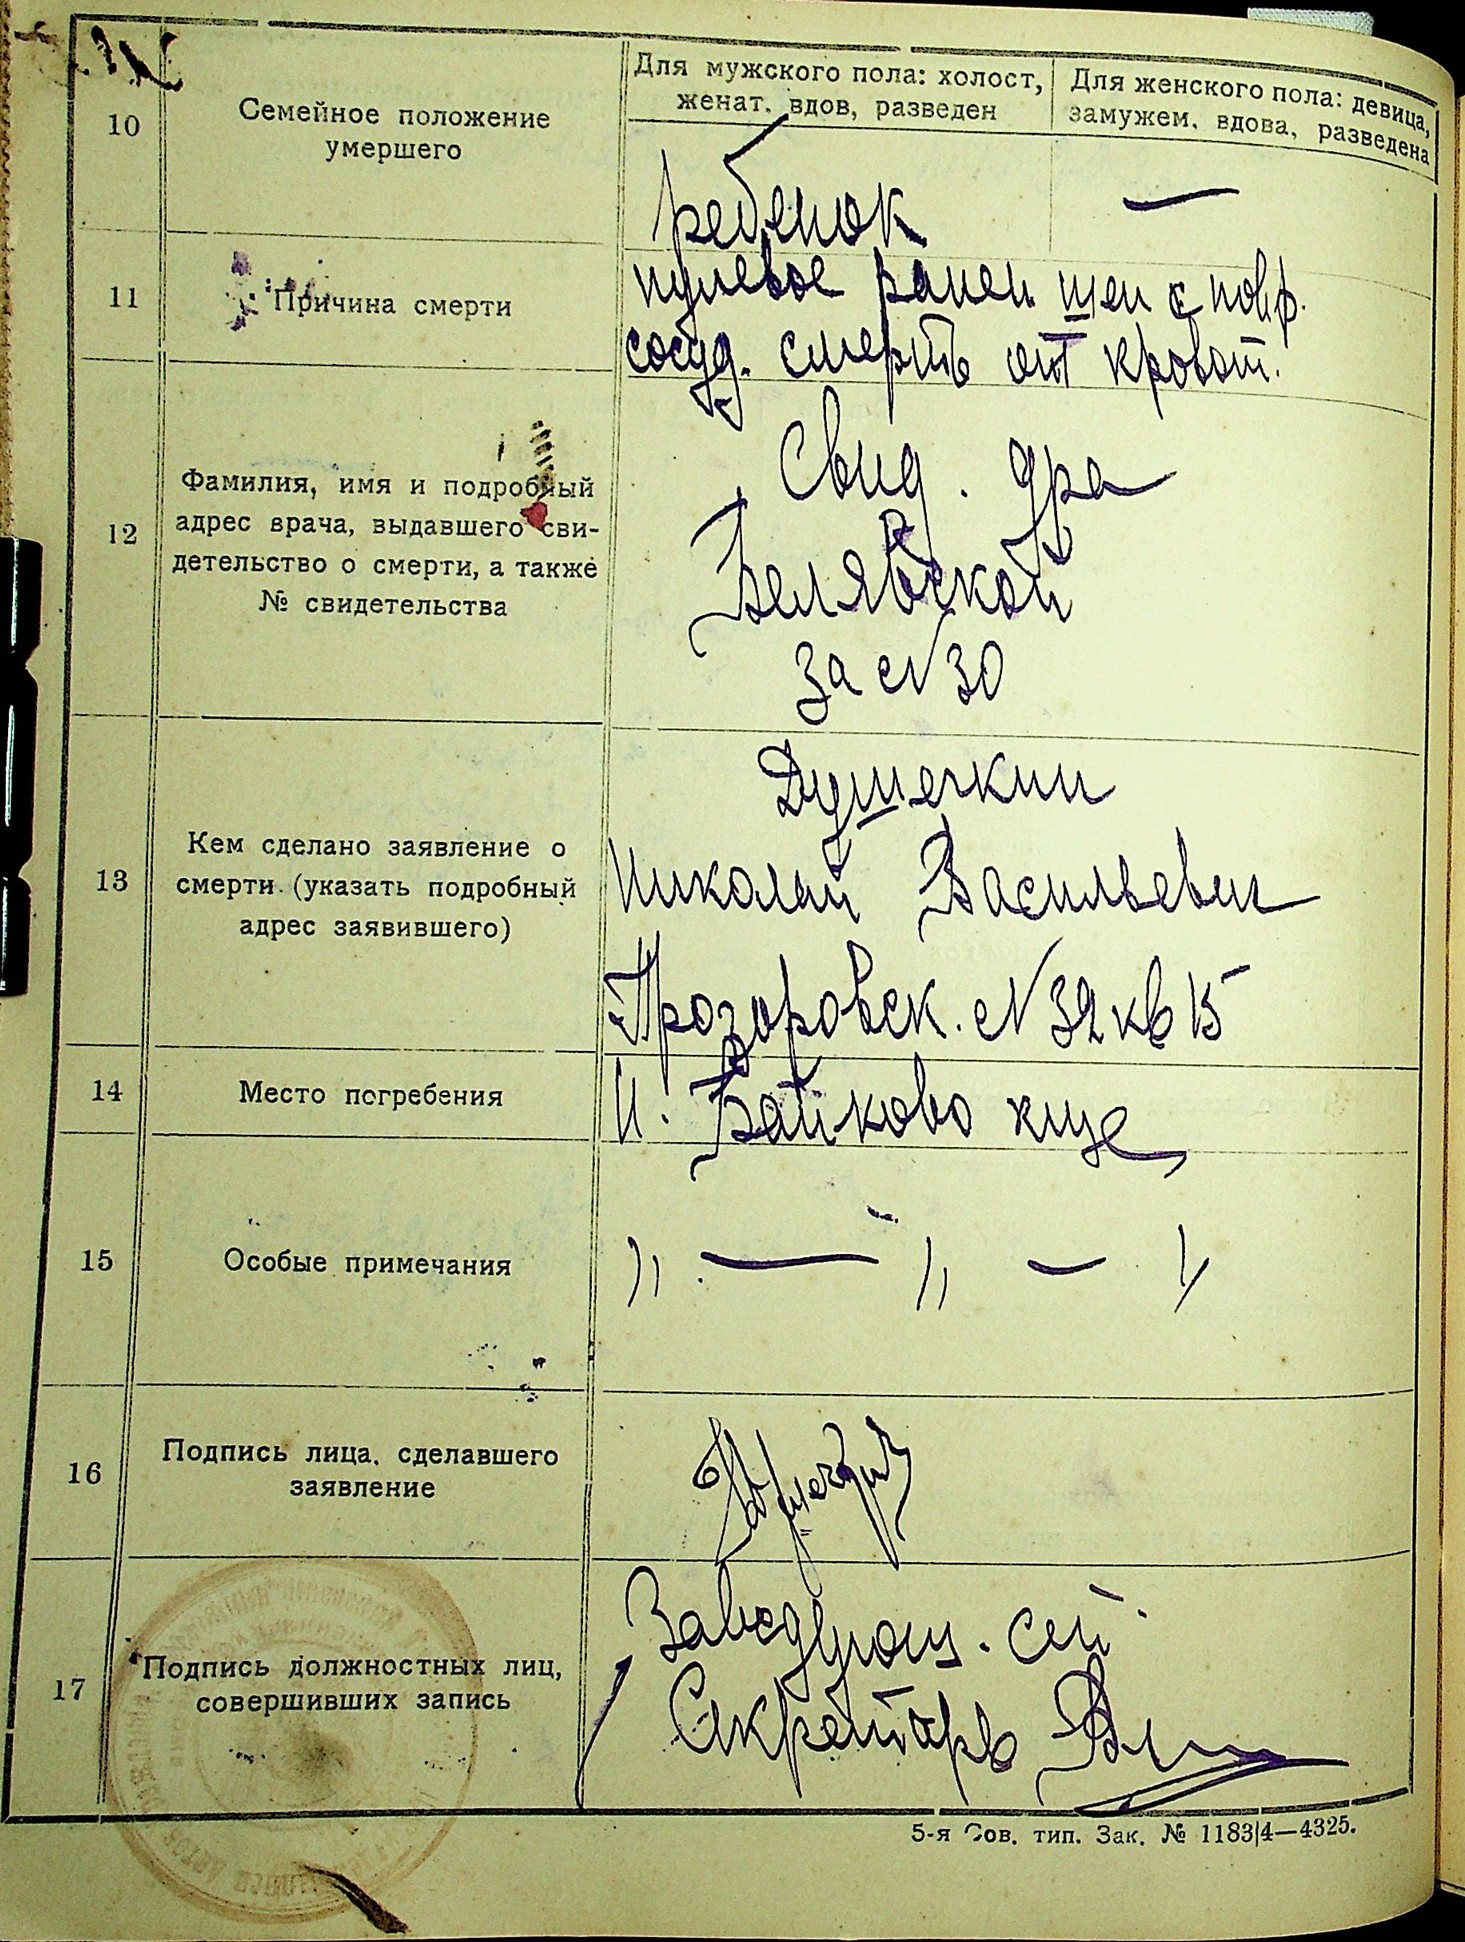 10
Семейное положение
умершего
Для мужского пола: холост,
женат. вдов, разведен
Для женского пола: девица,
замужем. вдова, разведена
ребенок —
11
Причина смерти
пулевое ранен. шеи с повр.
сосуд. смерть от кровот.
12
Фамилия, имя и подробный
адрес врача, выдавшего сви-
детельство о смерти, а также
№ свидетельства
Свид. дра
Белявской
за № 30
13
Кем сделано заявление о
смерти (указать подробный
адрес заявившего)
Душечкин
Николай Васильевич
Прозоровск. № 32 кв 15
14
Место погребения
Н. Байково кще
15
Особые примечания
〃 — 〃 — 〃
16
Подпись лица, сделавшего
заявление
17
Подпись должностных лиц,
совершивших запись
Заведующ.
Секретарь
5-я Сов. тип. Зак. № 1183|4—4325.